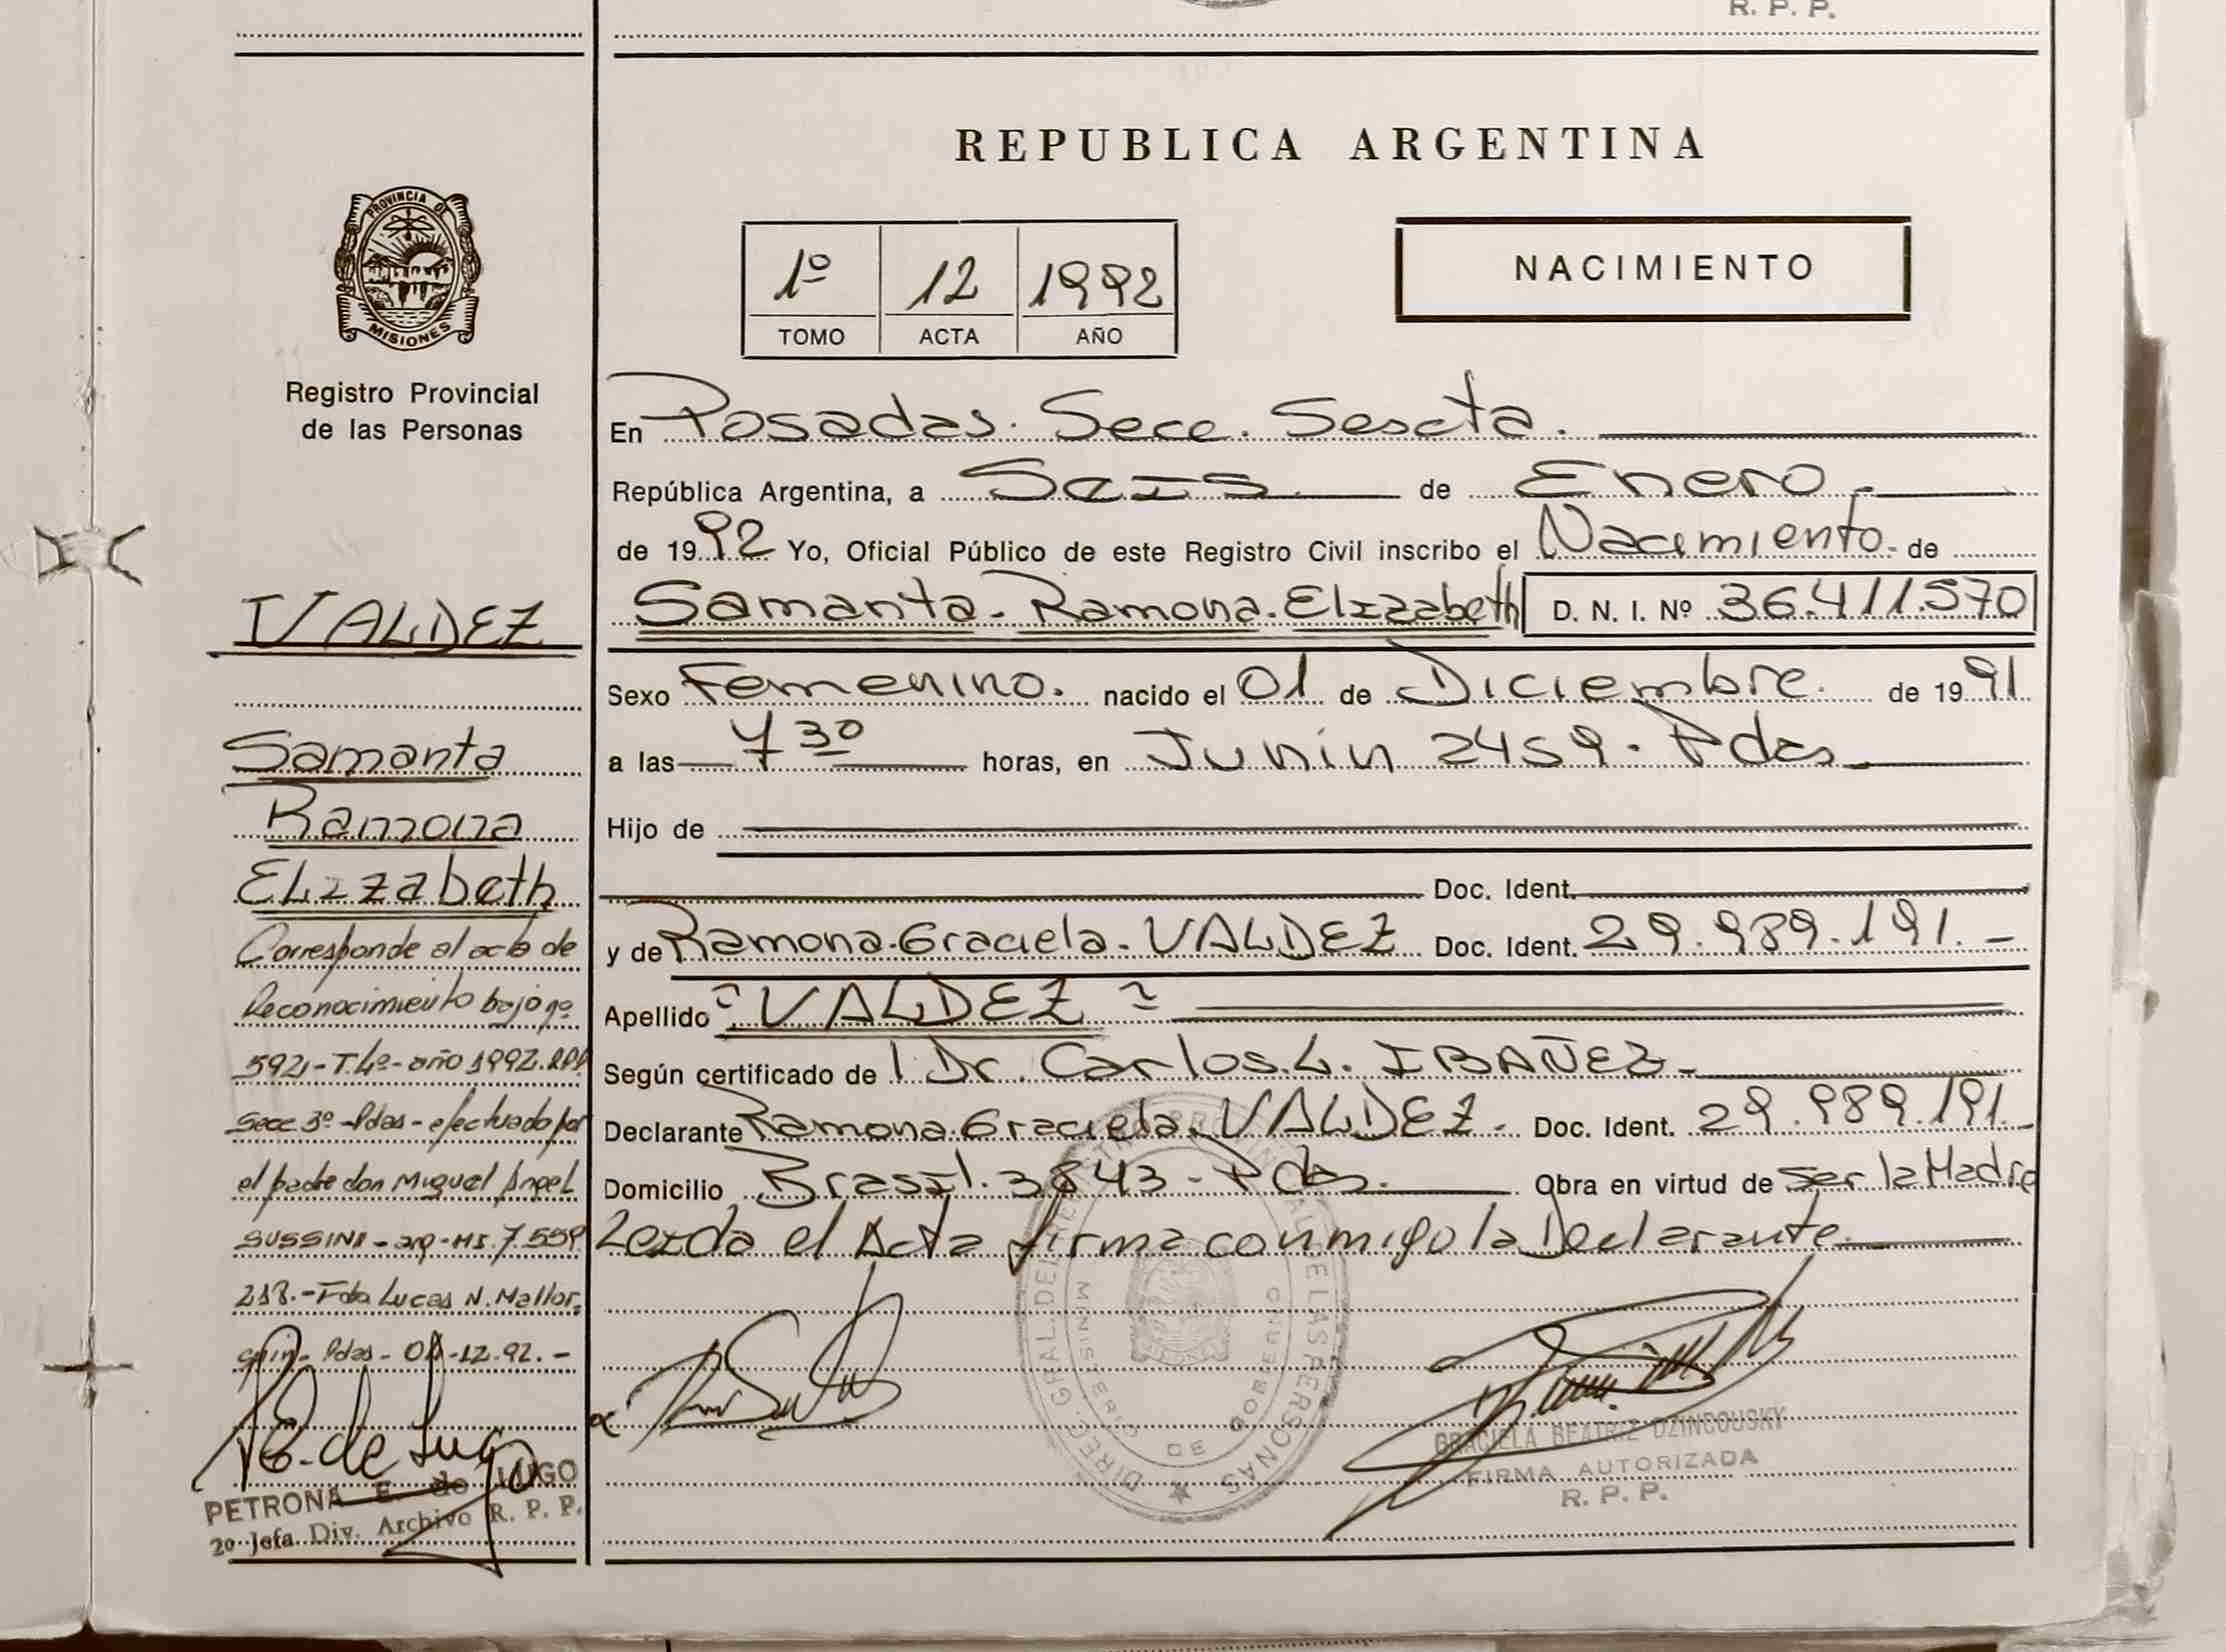 R. P. P.
REPUBLICA ARGENTINA
PROVINCIA DE
MISIONES
Registro Provincial
de las Personas
1º 12 1992
TOMO ACTA AÑO
NACIMIENTO
En Posadas. Secc. Sescta.
República Argentina, a Seis de Enero.
de 1992 Yo, Oficial Público de este Registro Civil inscribo el Nacimiento de
Samanta. Ramona. Elizzabeth D. N. I. Nº 36.411.570
Sexo Femenino. nacido el 01 de Diciembre. de 1991
a las 7 30 horas, en Junín 2459. Pdas
Hijo de
Doc. Ident.
y de Ramona. Graciela. VALDEZ Doc. Ident. 29.989.191.
Apellido "VALDEZ"
Según certificado de l Dr. Carlos. L. IBAÑEZ
Declarante Ramona. Graciela. VALDEZ. Doc. Ident. 29.989.191.
Domicilio Brasil. 3843 - Pdas. Obra en virtud de ser la Madre
Leida el Acta firma conmigo la Declarante
VALDEZ
Samanta
Ramona
Elizzabeth
Corresponde al acta de
Reconocimiento bajo nº
592,- Tº 4º- año 1992. RPP.
Secc 3º - Pdas - efectuado por
el padre don Miguel Angel
SUSSINI - arg - MI. 7.559
218. - Fdo Lucas N. Mallor,
quin - Pdas - -12-92. -
DIREC. GRAL. DEL REGISTRO PROVINCIAL DE LAS PERSONAS
MINISTERIO DE GOBIERNO
GRACIELA BEATRIZ DZINCOUSKY
FIRMA AUTORIZADA
R. P. P.
PETRONA E. de LUGO
2º Jefa Div. Archivo R. P. P.